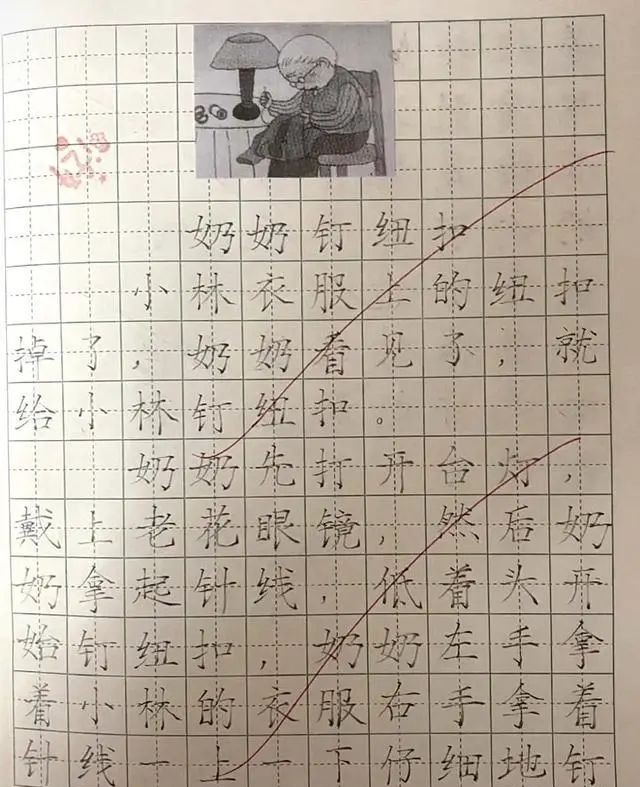 奶奶钉纽扣
小林衣服上的纽扣
掉了，奶奶看见了，就
给小林钉纽扣。
奶奶先打开台灯，
戴上老花眼镜，然后奶
奶拿起针线，低着头开
始钉纽扣，奶奶左手拿
着小林的衣服右手拿着
针线一上一下仔细地钉